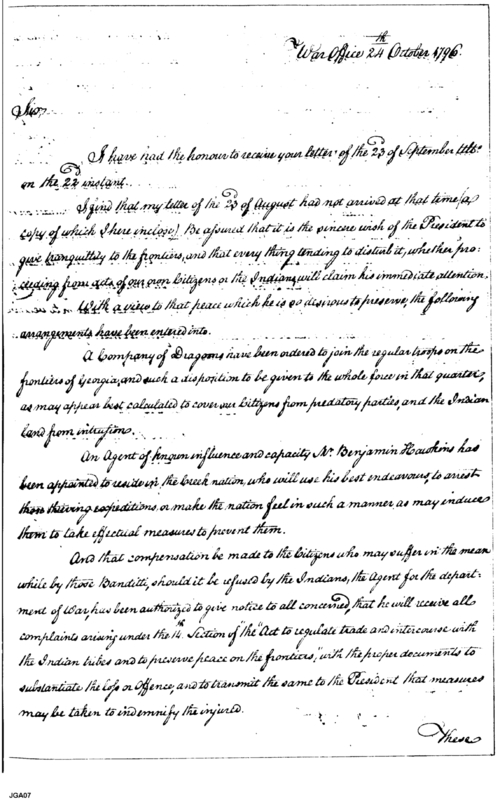 War Office 24th October 1796.
Sir,
I have had the honour to receive your letter of the 23d of September ulto.
on the 22d instant.
I find that my letter of the 23d of August had not arrived at that time (a
copy of which I here inclose). Be assured that it is the sincere wish of the President to
give tranquillity to the frontiers, and that every thing tending to disturb it, whether pro-
ceeding from acts of our own Citizens or the Indians, will claim his immediate attention.
With a view to that peace which he is so desirous to preserve, the following
arrangements have been entered into.
A Company of Dragoons have been ordered to join the regular troops on the
frontiers of Georgia, and such a disposition to be given to the whole force in that quarter,
as may appear best calculated to cover our Citizens from predatory parties, and the Indian
land from intrusion.
An Agent of known influence and capacity Mr. Benjamin Hawkins has
been appointed to reside in the Creek nation, who will use his best endeavours, to arrest
these thieving expeditions, or make the nation feel in such a manner, as may induce
them to take effectual measures to prevent them.
And that compensation be made to the Citizens who may suffer in the mean
while by those Banditti, should it be refused by the Indians, the Agent for the depart-
ment of War, has been authorized to give notice to all concerned, that he will receive all
complaints arising under the 14th Section of "the "Act to regulate trade and intercourse with
the Indian tribes and to preserve peace on the frontiers," with the proper documents to
substantiate the loss or Offence, and to transmit the same to the President that measures
may be taken to indemnify the injured.
These
JGA07